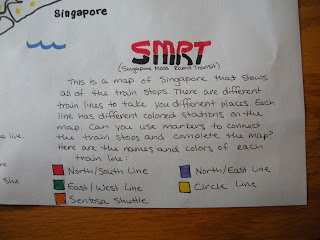 Singapore
SMRT
(Singapore Mass Rapid Transit)
This is a map of Singapore that shows
all of the train stops. There are different
train lines to take you different places. Each
line has different colored stations on the
map. Can you use markers to connect
the train stops and complete the map?
Here are the names and colors of each
train line:
North/South Line
North/East Line
East/West Line
Circle Line
Sentosa Shuttle
live.
She